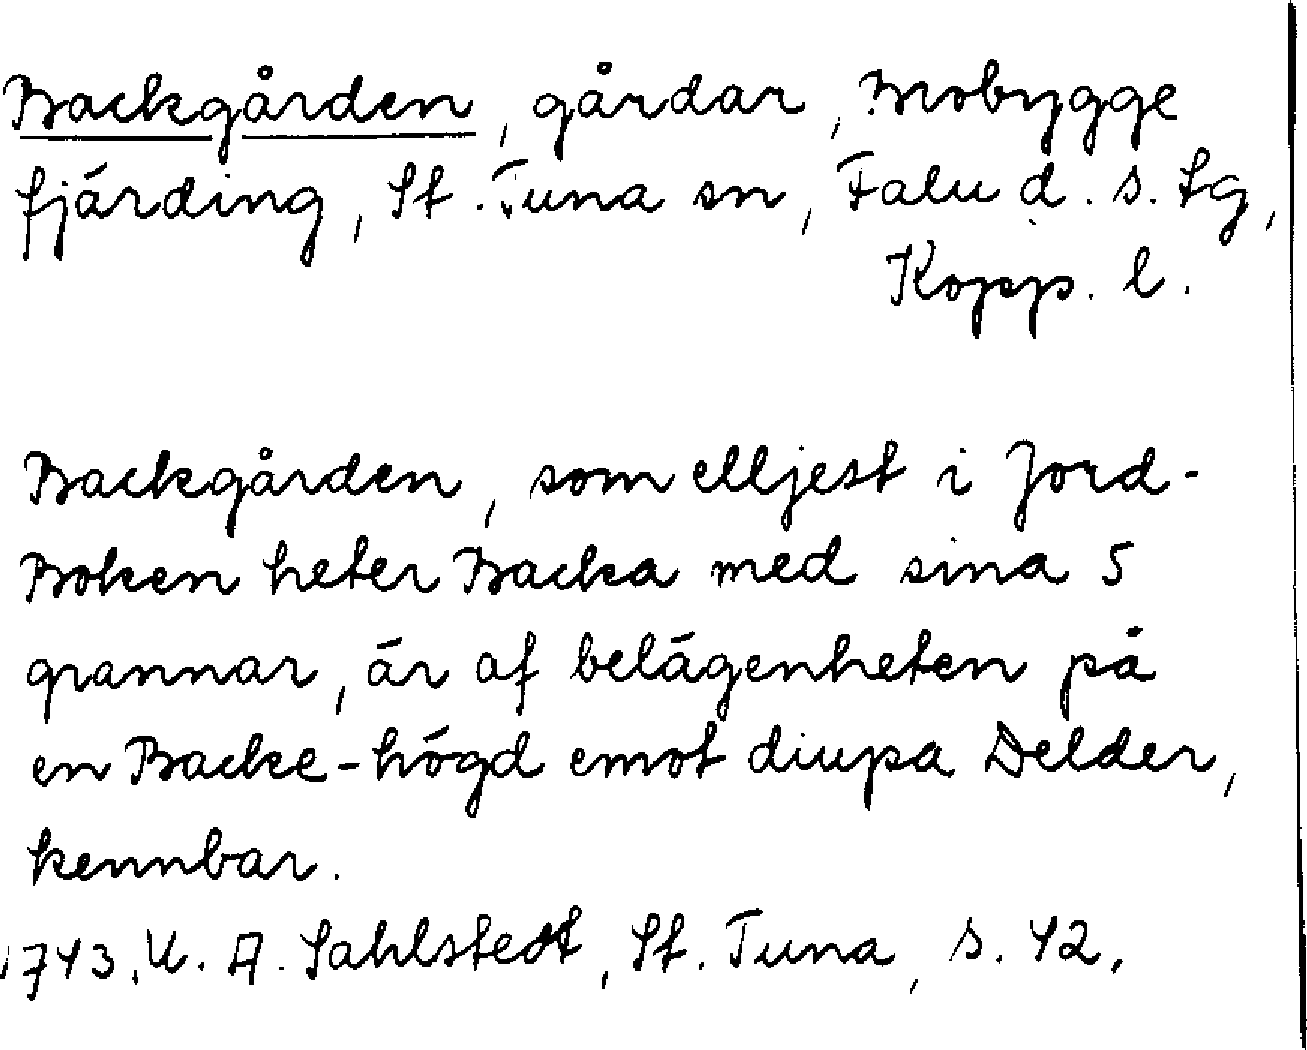 Backgården, gårdar, Mobygge
fjärding, St. Tuna sn, Falu d. s. tg,
Kopp. l.
Backgården, som elljest i Jord-
Boken heter Backa med sina 5
grannar, är af belägenheten på
en Backe-högd emot diupa Delder,
kennbar.
1743. U. A. Sahlstedt, St. Tuna, s. 42.